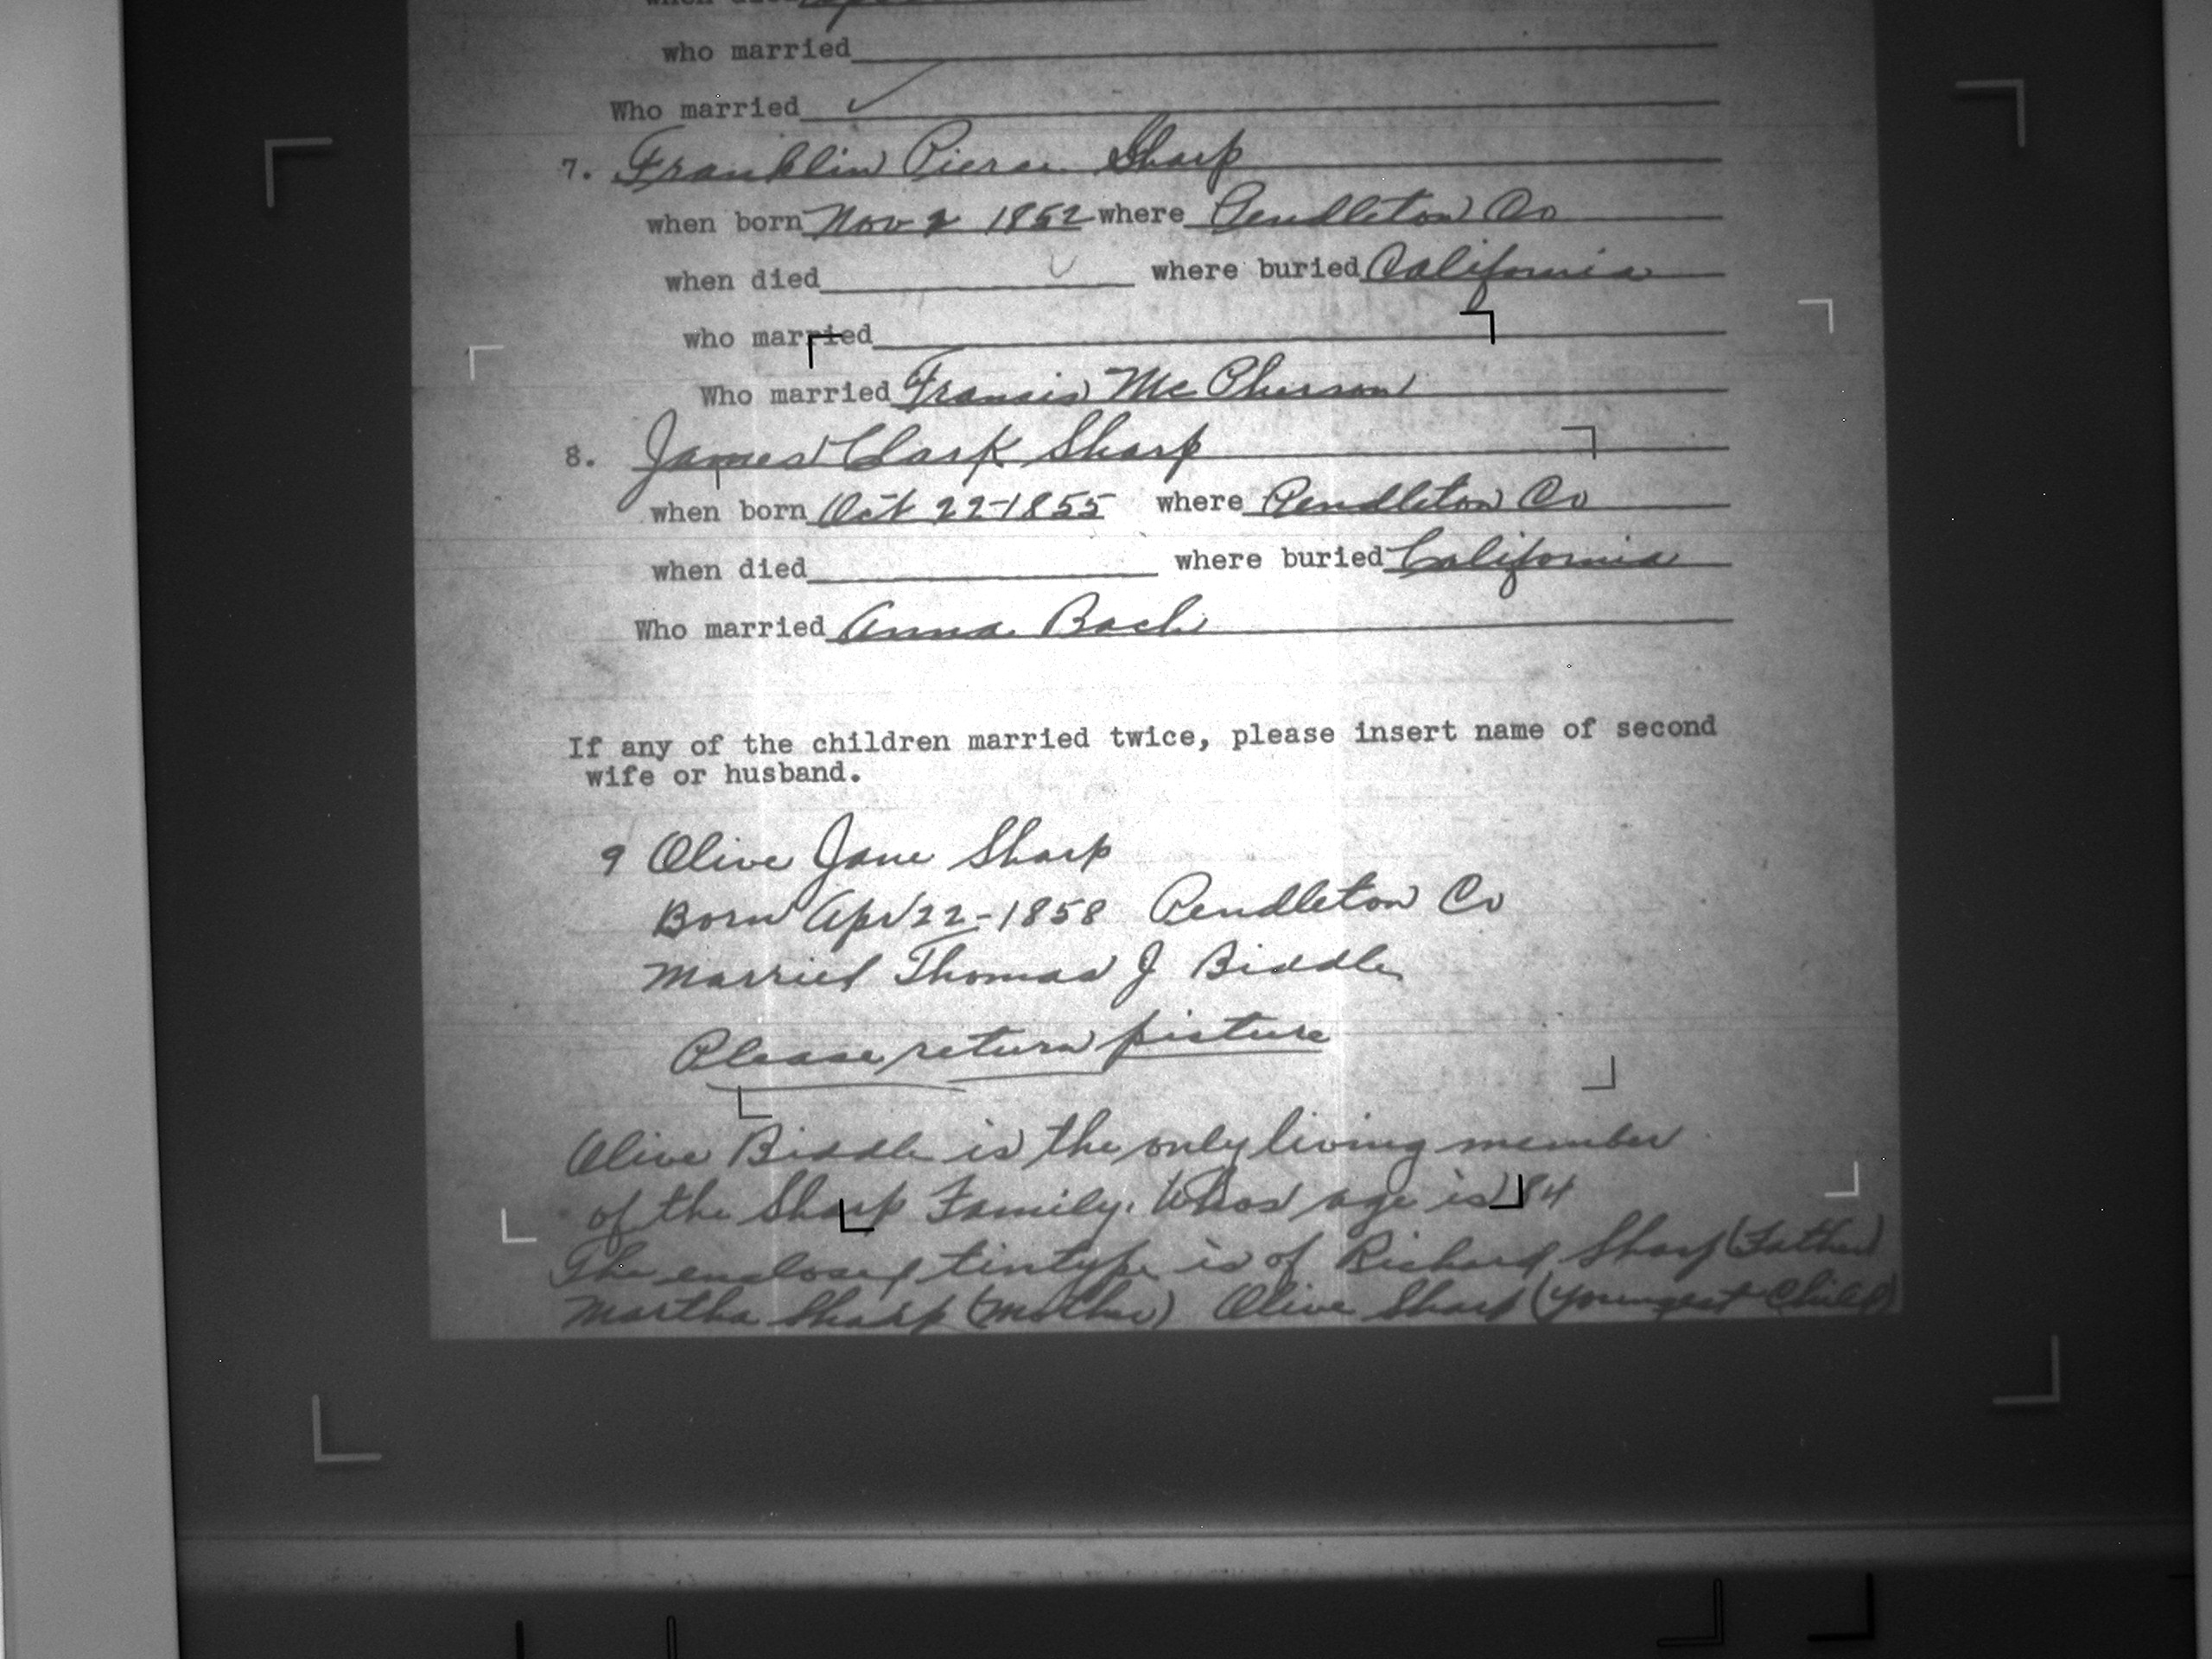 who married
Who married ✓
7. Franklin Pierce Sharp
when born Nov 2 1852 where Pendleton Co
when died where buried California
who married
Who married Francis McPherson
8. James Clark Sharp
when born Oct 22-1855 where Pendleton Co
when died where buried California
Who married Anna Bach
If any of the children married twice, please insert name of second
wife or husband.
9 Olive Jane Sharp
Born Apr 22-1858 Pendleton Co
Married Thomas J Biddle
Please return picture
Olive Biddle is the only living member
of the Sharp Family. Whos age is 84
The enclosed tintype is of Richard Sharp (Father)
Martha Sharp (Mother) Olive Sharp (youngest Child)